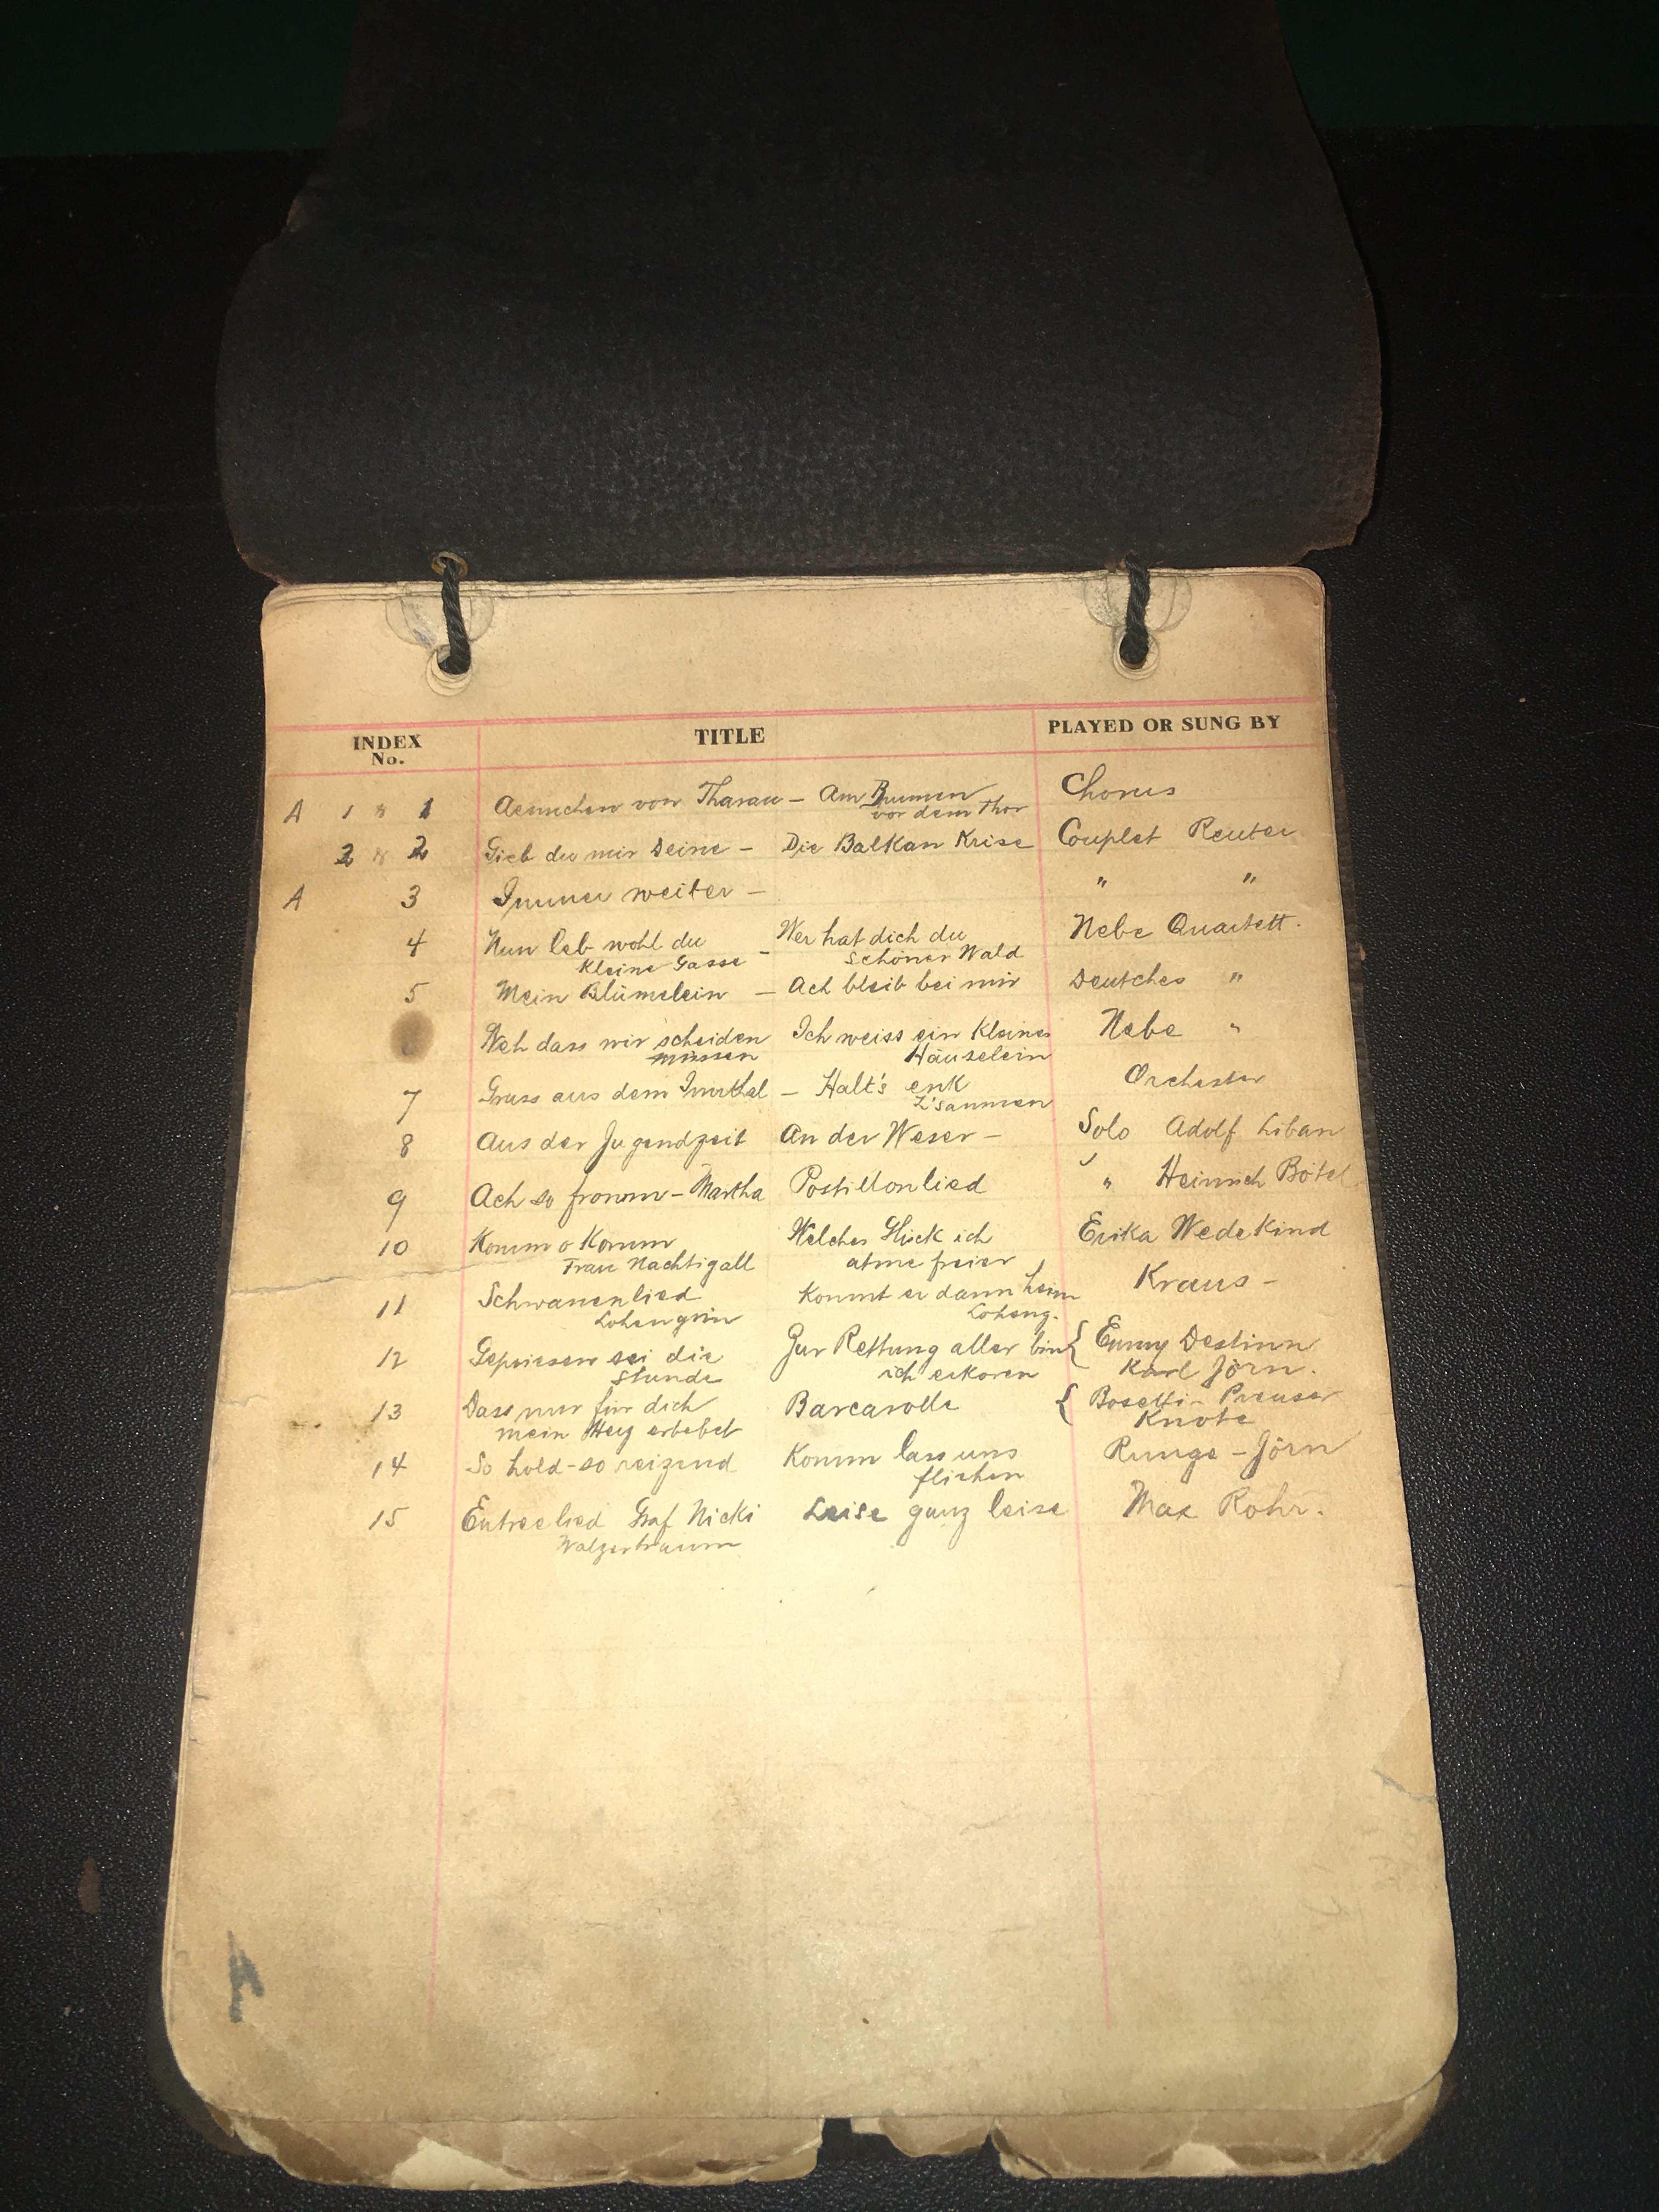 INDEX No. TITLE PLAYED OR SUNG BY
A 1 " 1 Aennchen von Tharau – Am Brunnen vor dem Thor Chorus
2 " 2 Gieb du mir Deine – Die Balkan Krise Couplet Reuter
A 3 Immer weiter – " "
4 Nun leb wohl du Kleine Gasse – Wer hat dich du schöner Wald Nebe Quartett.
5 Mein Blümelein – Ach bleib bei mir Deutches "
Weh dass wir scheiden müssen Ich weiss ein Kleines Häuselein Nebe "
7 Gruss aus dem Innthal – Halt's enk Z'sammen Orchester
8 Aus der Jugendzeit An der Weser – Solo Adolf Liban
9 Ach so fromm – Martha Postillonlied " Heinrich Bötel
10 Komm o Komm Frau Nachtigall Welches Glück ich atme freier Erika Wedekind
11 Schwanenlied Lohengrin Kommt er dann heim Loheng. Kraus –
12 Gepriesen sei die Stunde Zur Rettung aller bin ich erkoren { Emmy Destinn Karl Jörn.
13 Dass nur für dich mein Herz erbebet Barcarolle { Bosetti – Preuser Knote
14 So hold – so reizend Komm lass uns fliehen Runge – Jörn
15 Entreelied Graf Nicki Walzertraum Leise ganz leise Max Rohr.